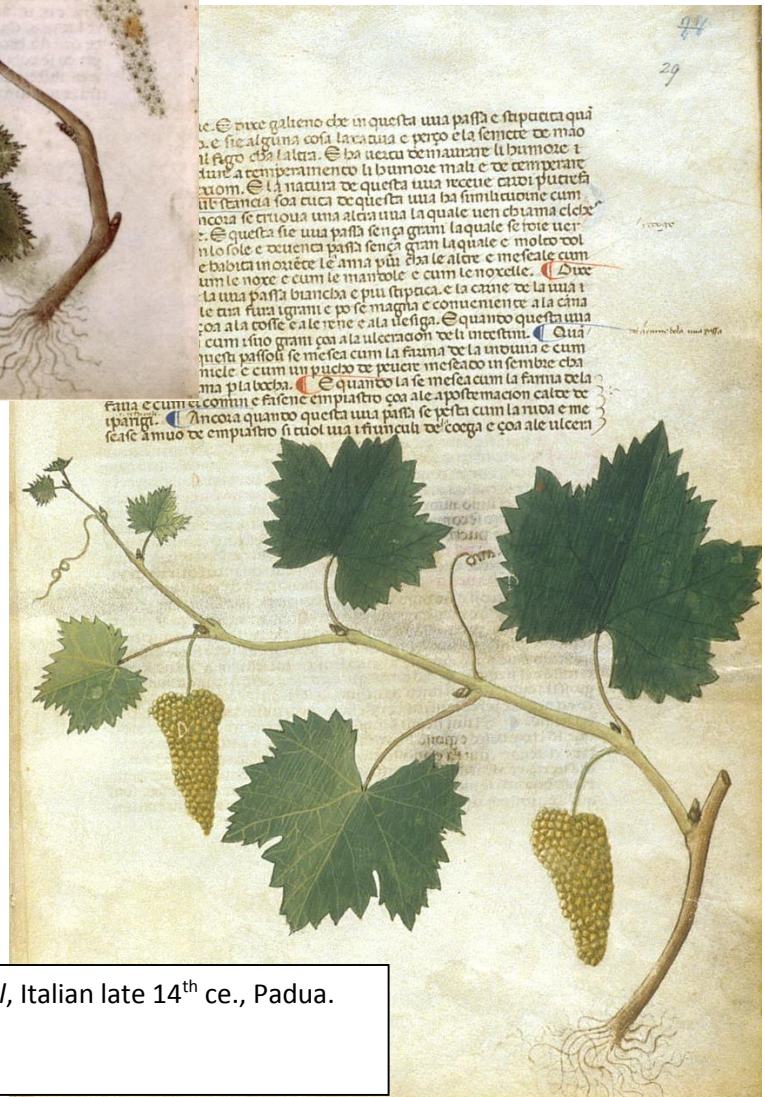 29
ie. E dixe galieno che in questa uua passa e stipticita quā
o. e sie alguna cosa laxatiua e perço ela semete de mao
il figo cha laltra. E ha uertu de maurare li humore i
a temperamento li humore mali e de temperare
xiom. E la natura de questa uua receue tardi putrefa
substancia soa tuta de questa uua ha similitudine cum
ncora se truoua una altra uua la quale uen chiama
e. E questa sie uua passa sença grani la quale se tole uer
n lo sole e deuenta passa sença gran la quale e molto dol
e habita in oriēte le ama più cha le altre e mescale cum
um le noxe e cum le mandole e cum le noxelle. Dixe
la uua passa biancha e piu stiptica. e la carne de la uua i
le tra fura i grani e po se magna e conueniente a la cāna
çoa a la tosse e a le rene e a la uesiga. E quando questa uua
cum i suo grani çoa a la ulceracion de li intestini. Quā
questi passoli se mesca cum la farina de la uua e cum
miele e cum un pucho de peuere mescado insembre cha
ma p la bocha. E quando la se mesca cum la farina dela
faua e cum el comin e fasene empiastro çoa ale apostemacion calde de
iparigi. Ancora quando questa uua passa se pesta cum la ruda e me
scase a muo de empiastro si tuol uia i fruncoli de coega e çoa ale ulcera
l, Italian late 14th ce., Padua.